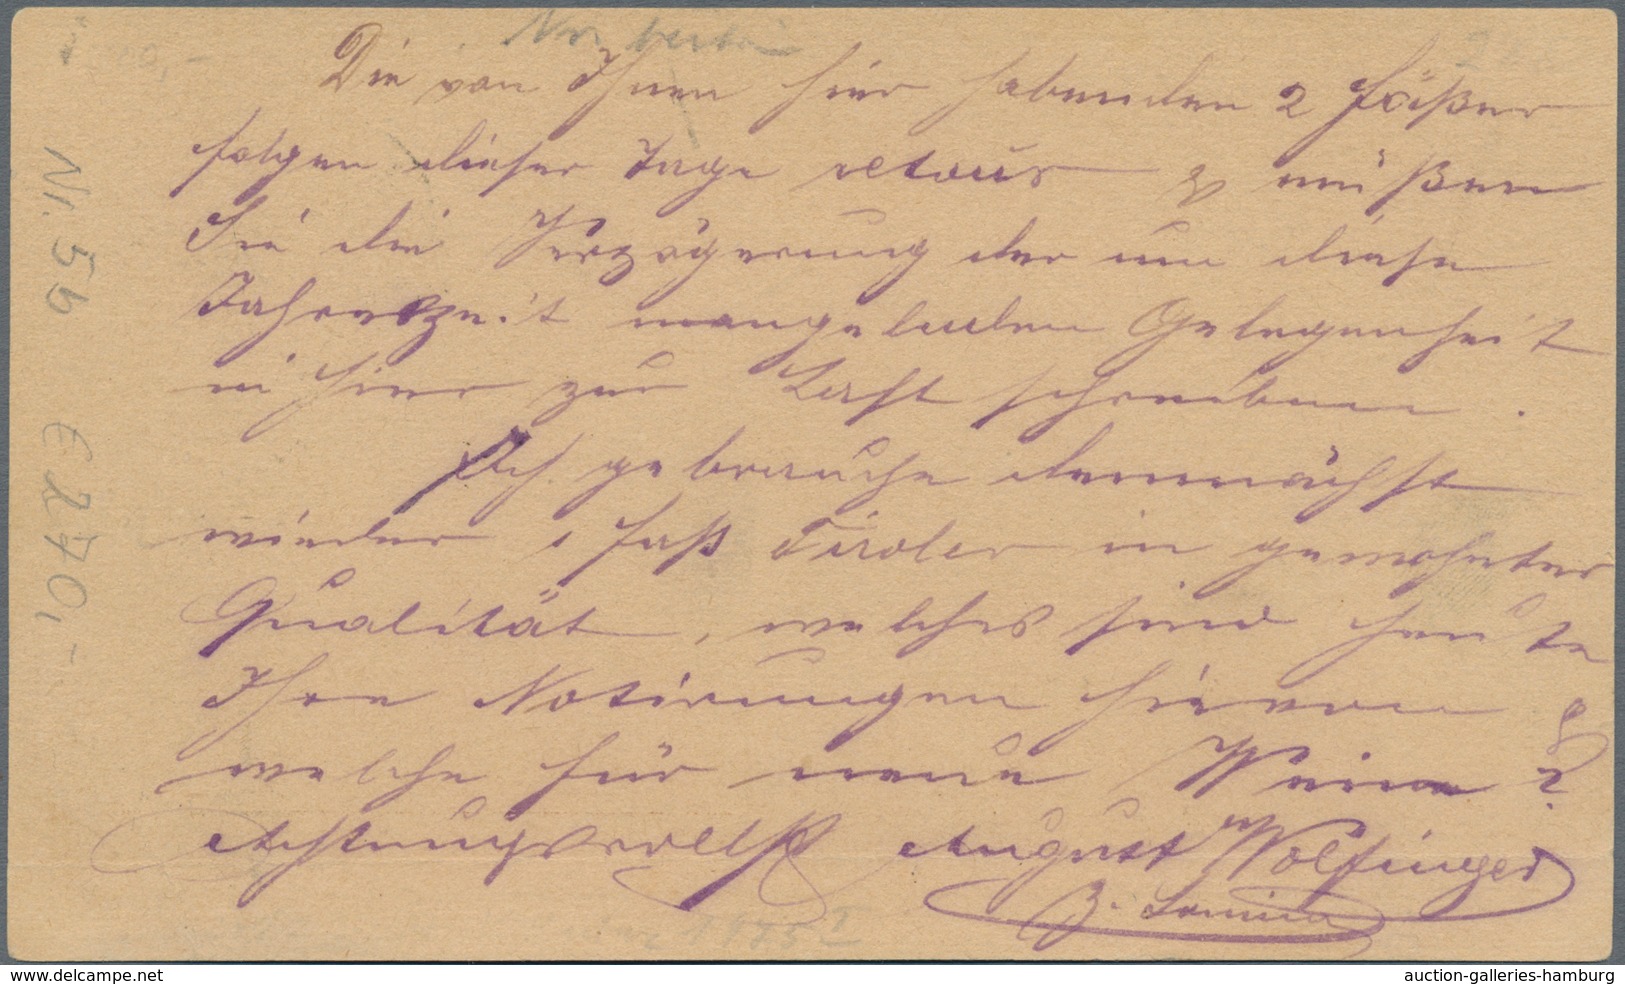 Die von Ihnen hier habenden 2 Fäßer
folgen dieser Tage retour & müßen
Sie die Verzögerung der um diese
Jahreszeit mangelnden Gelegenheit
hier zur Last schreiben.
Ich gebrauche demnächst
wieder 1 Faß Tiroler in gewohnter
Qualität, welches sind heute
Ihre Notirungen hievon &
welche für neue Weine?
Achtungsvollst August Wolfinger
Nr. 5b € 270,-
www.delcampe.net
auction-galleries-hamburg